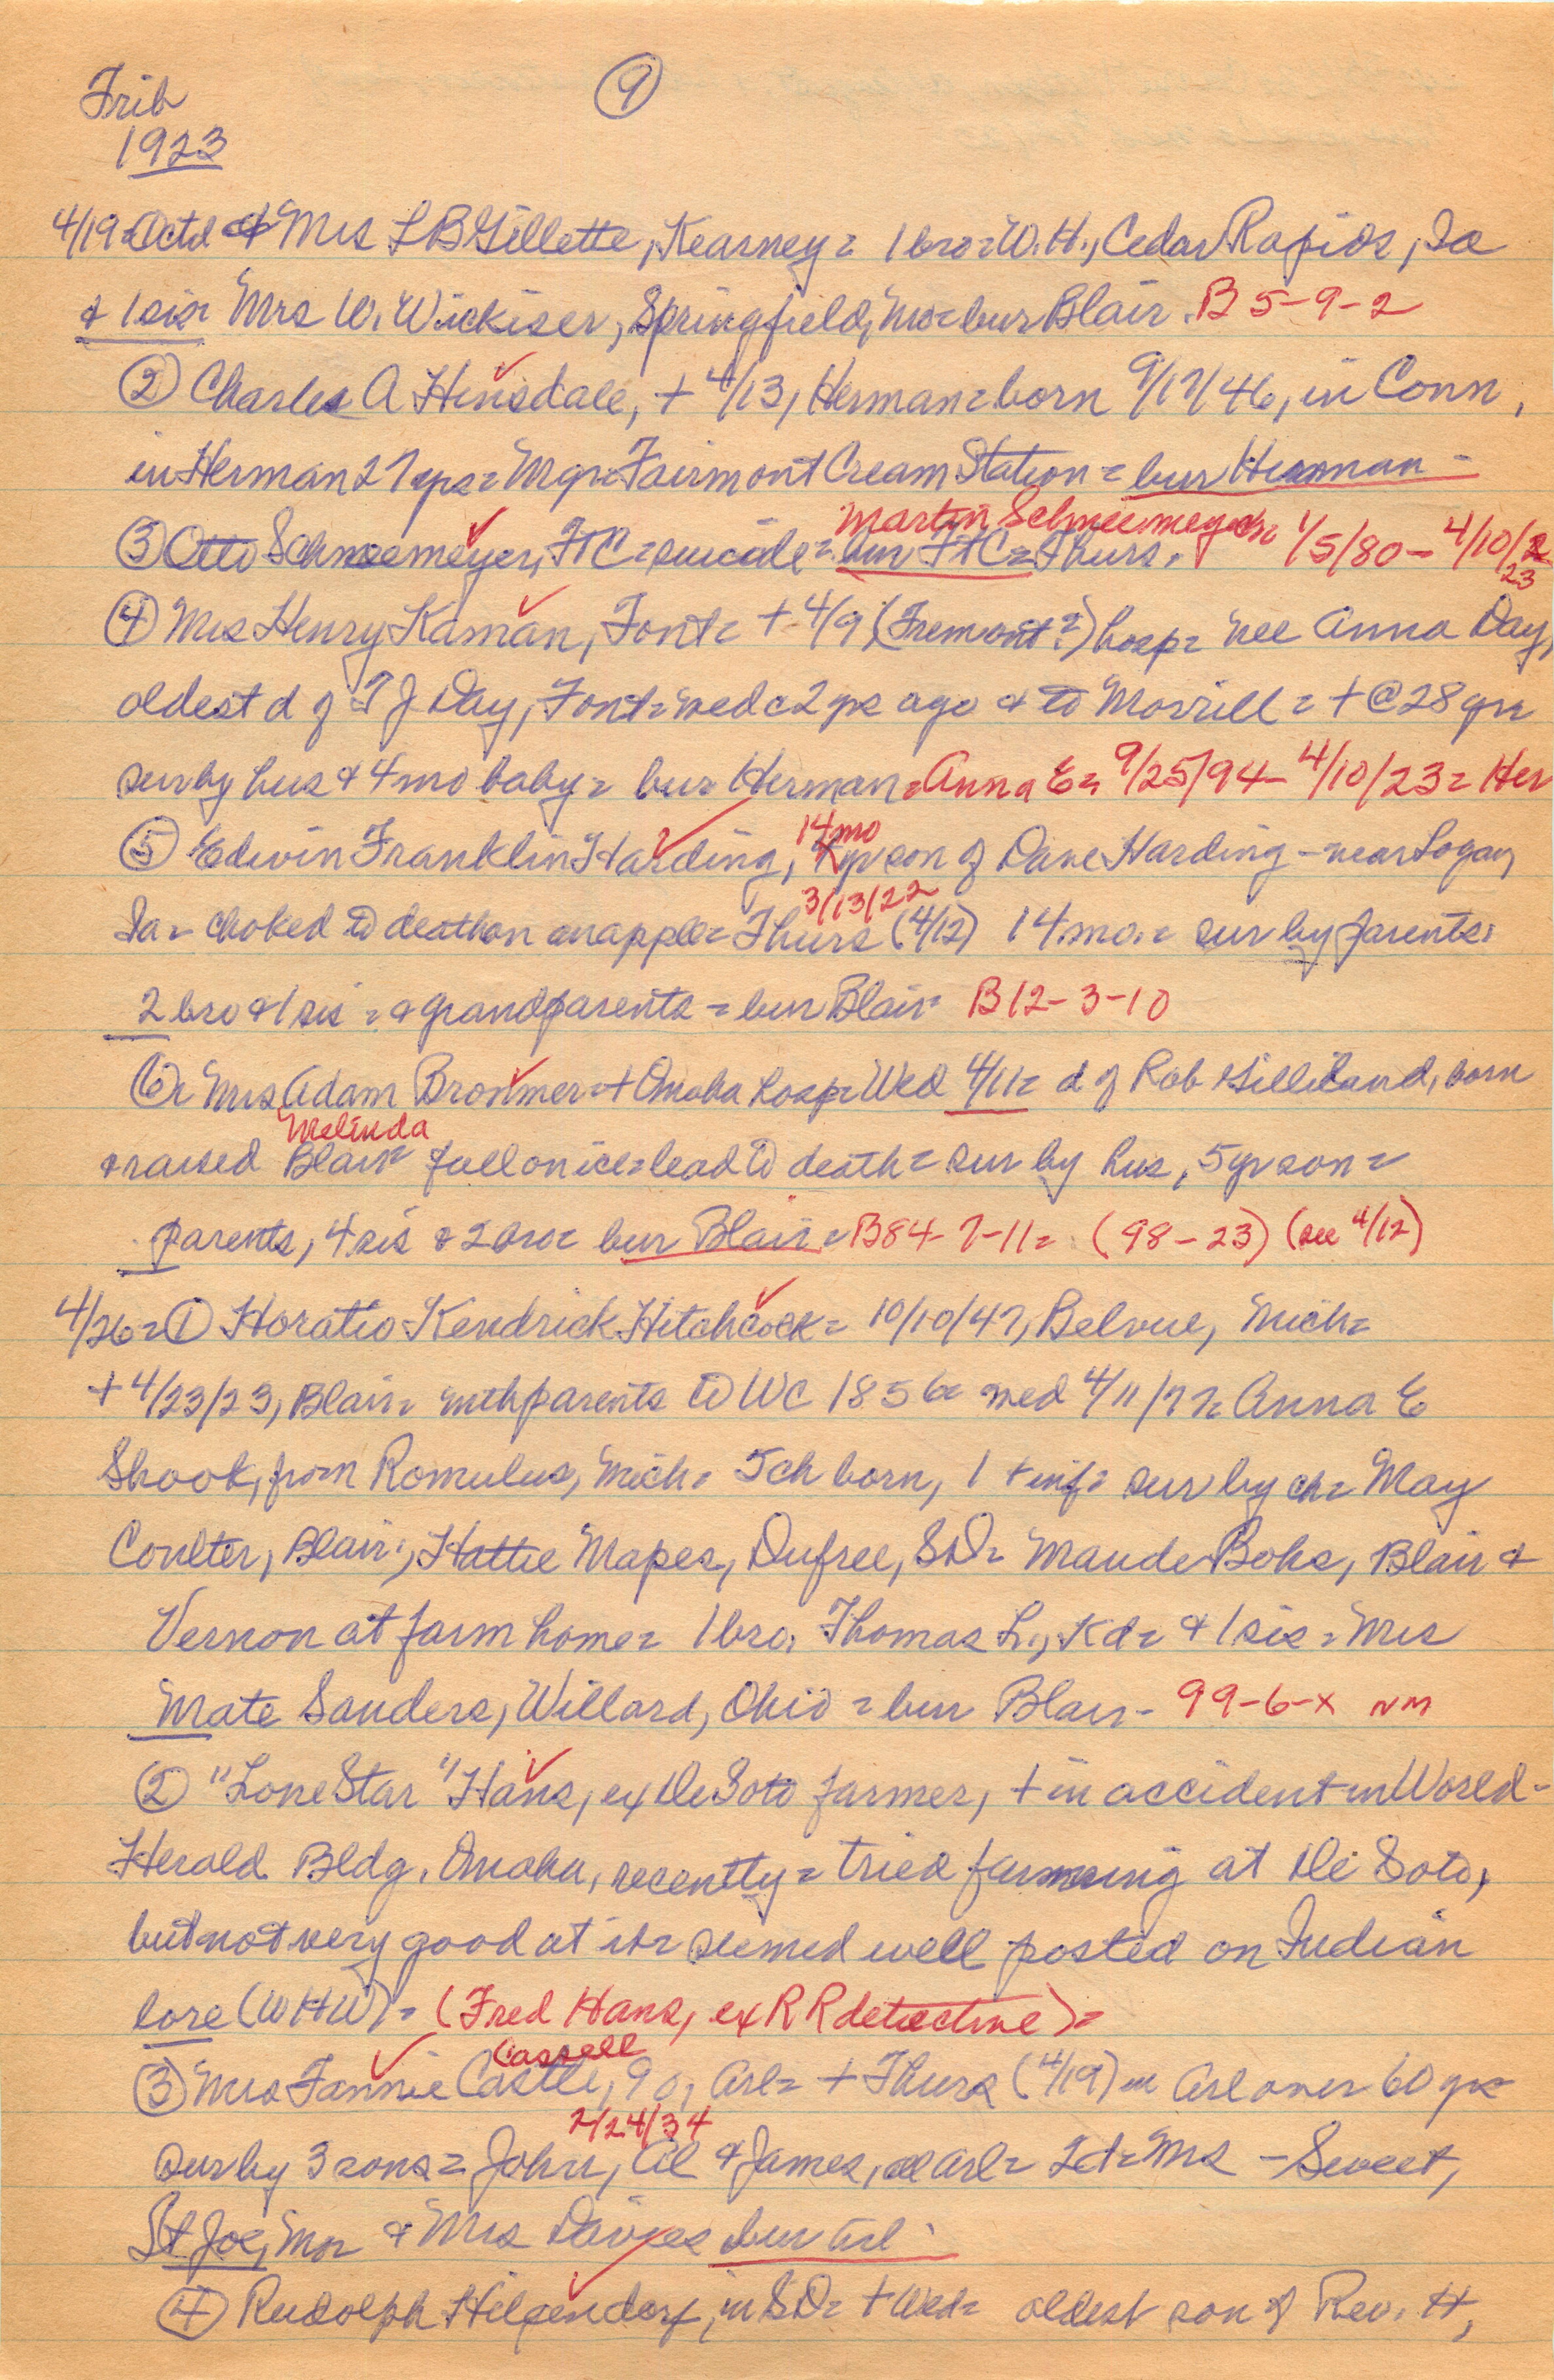 Trib
9
1923
4/19 Octd & Mrs L B Gillette, Kearney = 1 bro = W.H., Cedar Rapids, Ia
& 1 sis = Mrs W. Wickiser, Springfield, Mo = bur Blair. B 5-9-2
② Charles A Hinsdale, + 4/13, Herman = born 9/17/46, in Conn,
in Herman 27 yrs = Mgr = Fairmont Cream Station = bur Herman -
Martin Schneemeyer
③ Otto Schneemeyer, FtC = suicide = bur FtC = Thurs. 1/5/80 - 4/10/23
④ Mrs Henry Kaman, Font = + 4/9 (Fremont?) hosp = nee Anna Day,
oldest d of T J Day, Font = wed c 2 yrs ago & to Morrill = + @ 28 yrs
sur by hus & 4 mo baby = bur Herman = Anna E = 9/25/94 - 4/10/23 = Her
14 mo
⑤ Edwin Franklin Harding, yr son of Dave Harding - near Logan,
3/13/22
Ia = choked to death on an apple = Thurs (4/12) 14 mo. = sur by parents,
2 bro & 1 sis = & grandparents = bur Blair = B 12-3-10
⑥ = Mrs Adam Brommer = + Omaha hosp = Wed 4/11 = d of Rob Gilliland, born
Melinda
& raised Blair = fall on ice = lead to death = sur by hus, 5 yr son =
parents, 4 sis & 2 bro = bur Blair = B84-7-11 = (98-23) (see 4/12)
4/26 = ① Horatio Kendrick Hitchcock = 10/10/47, Belvue, Mich =
+ 4/23/23, Blair = with parents to WC 1856 = wed 4/11/72 Anna E
Shook, from Romulus, Mich = 5 ch born, 1 + inf = sur by ch = May
Coulter, Blair, Hattie Mapes, Dufree, SD = Maude Bohs, Blair &
Vernon at farm home = 1 bro, Thomas L., Kd = & 1 sis = Mrs
Mate Sanders, Willard, Ohio = bur Blair - 99-6-x NM
② "Lone Star" Hans, ex DeSoto farmer, + in accident in World-
Herald Bldg. Omaha, recently = tried farming at De Soto,
but not very good at it = seemed well posted on Indian
lore (WHW) = (Fred Hans, ex RR detective) =
Cassell
③ Mrs Fannie Castle, 90, Arl = + Thurs (4/19) in Arl over 60 yrs
2/24/34
sur by 3 sons = John, Al & James, all Arl = 2 d = Mrs - Sweet,
St Joe, Mo = & Mrs Davies bur Arl -
④ Rudolph Hilgendorf, in SD = + Wed = oldest son of Rev. H,